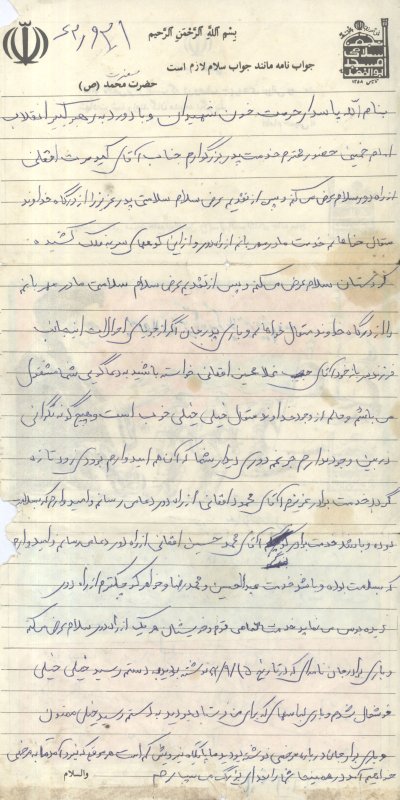 بسم الله الرحمن الرحیم
جواب نامه مانند جواب سلام لازم است
حضرت محمد (ص)
بنام الله پاسدار حرمت خون شهیدان و با درود به رهبر کبیر انقلاب
امام خمینی حضور محترم خدمت پدر بزرگوارم جناب آقای افغانی
از راه دور سلام عرض می کنم و پس از تقدیم عرض سلام سلامتی پدر عزیز را از درگاه خداوند
متعال خواهانم خدمت مادر مهربانم از راه دور و از این کوههای سر به فلک کشیده
کردستان سلام عرض می کنم و پس از تقدیم عرض سلام سلامت مادر مهربانم
را از درگاه خداوند متعال خواهانم و باری پدر جان اگر از جویای احوالات اینجانب
فرزند خود آقای غلامحسین افغانی خواسته باشید به دعاگویی شما مشغول
می باشم و حالم از وجود خداوند متعال خیلی خیلی خوب است و هیچ گونه نگرانی
در بین وجود ندارم جز غم دوری دیدار شما که آن هم امیدوارم بزودی زود تازه
گردد خدمت برادر عزیزم آقای محمود افغانی از راه دور دعا می رسانم و امیدوارم که سلامت
بوده و باشد خدمت برادر آقای محمد حسین افغانی از راه دور دعا می رسانم و امیدوارم
که سلامت بوده و باشد خدمت عبدالحسین و محمدرضا و خواهر کوچکترم از راه دور
دیده بوس می نمایم خدمت تمامی قوم و خویشان هر یک از راه دور سلام عرض می کنم
و باری برادر جان نامه ای که در تاریخ نوشته بودید به دستم رسید خیلی خیلی
خوشحال شدم و باری لباسهای که برای من فرستاده بودید به دستم رسید خیلی ممنون
و باری برادر جان درباره مرخصی نوشته بودید ما پایگاه نیرویش کم است هر موقع که نیرو آمد ما به مرخصی
خواهیم آمد در همینجا شما را بخدای بزرگ می سپارم
والسلام